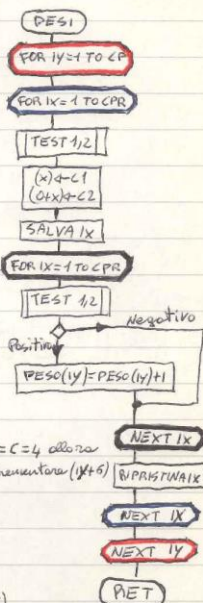 DESI
FOR IY=1 TO CP
FOR IX=1 TO CPR
TEST 1,2
(x)←C1
(0+x)←C2
SALVA IX
FOR IX=1 TO CPR
TEST 1,2
Negativo
Positivo
PESO(IY)=PESO(IY)+1
NEXT IX
=C=4 allora
(IY+5)
RIPRISTINA IX
NEXT IX
NEXT IY
RET